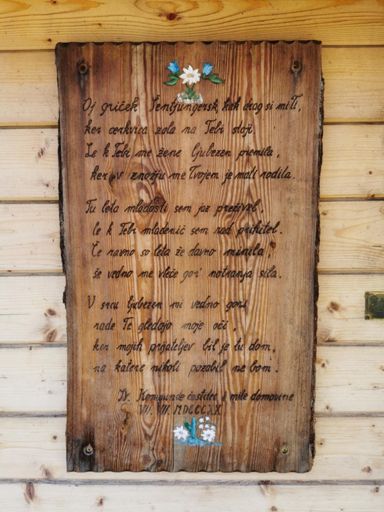 Oj griček Šentjungersk, kak drag si mi Ti,
ker cerkvica zala na Tebi stoji.
Le k Tebi me žene ljubezen premila,
ker v znožju me Tvojem je mati rodila.
Tu leta mladosti sem jaz preživel,
le k Tebi mladenič sem rad prihitel.
Če ravno so leta že davno minila,
še vedno me vleče gor notranja sila.
V srcu ljubezen mi vedno gori
rade Te gledajo moje oči,
ker mojih prijateljev bil je tu dom,
na katere nikoli pozabil ne bom.
Iz domovine
VII. MDCCCXX